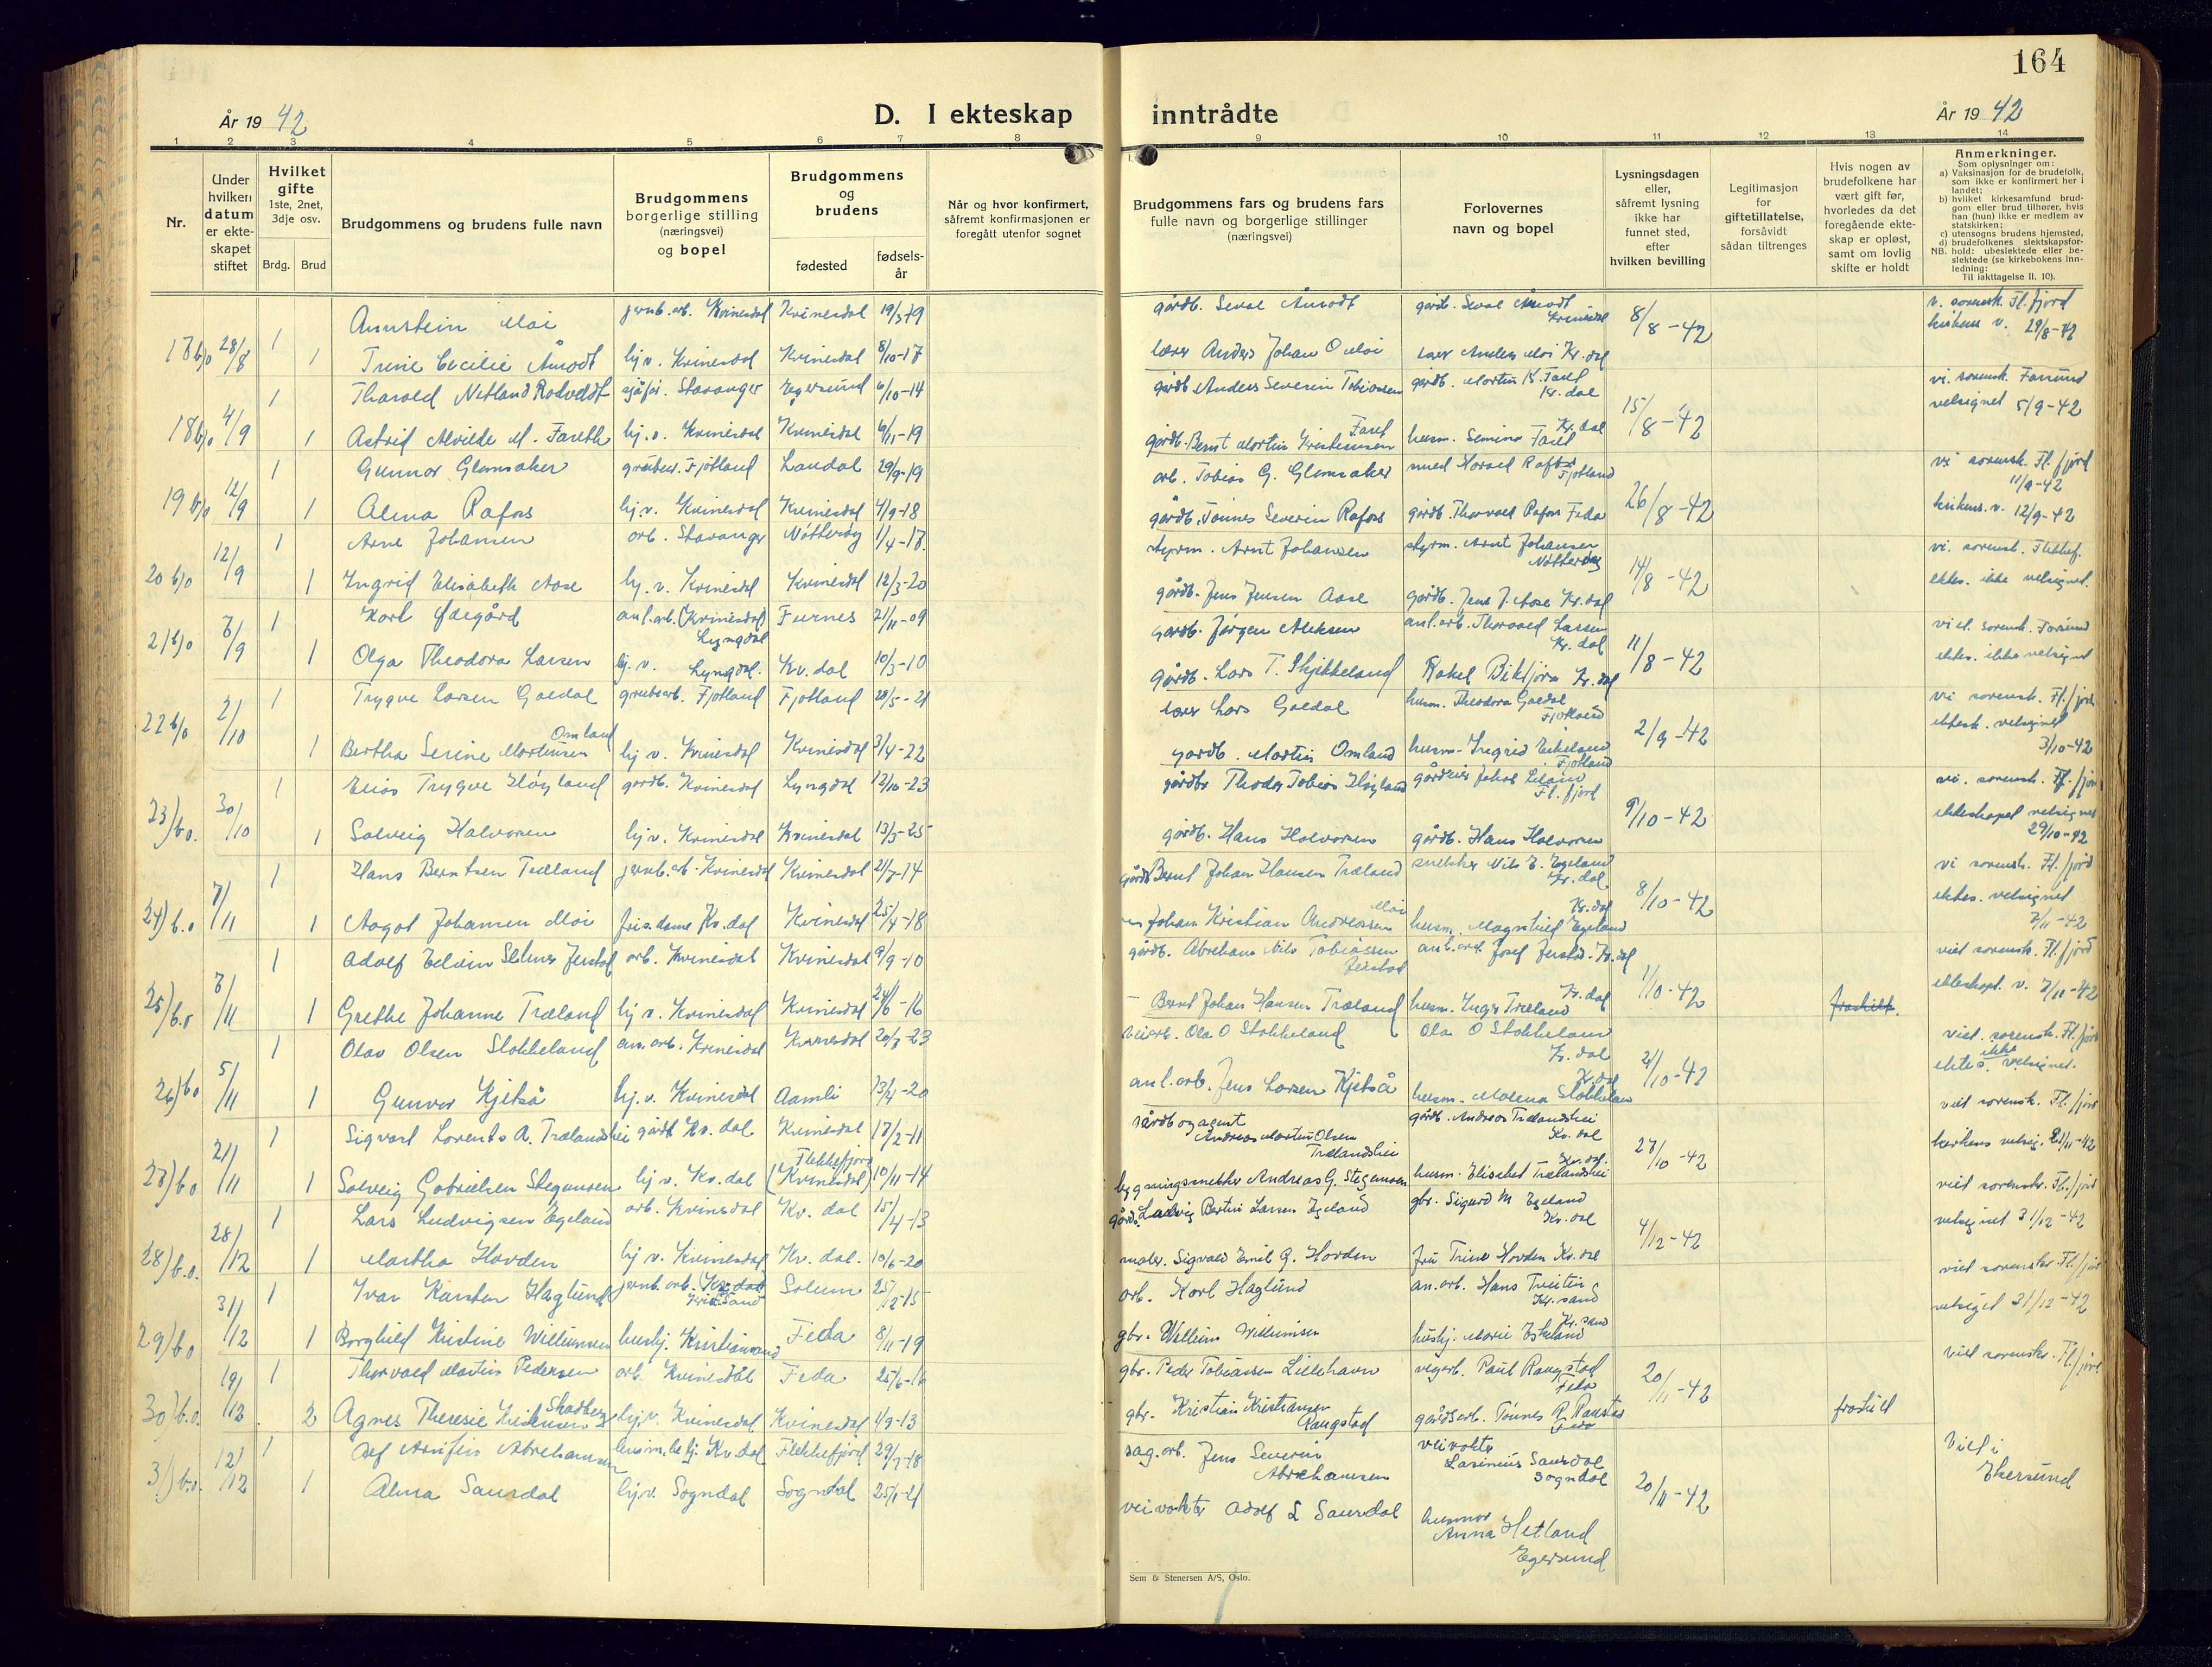 164
År 1942
D. I ekteskap inntrådte
År 1942
1 2 3 4 5 6 7 8 9 10 11 12 13 14
Nr.
Under hvilken datum er ekteskapet stiftet
Hvilket gifte 1ste, 2net, 3dje osv.
Brdg. Brud
Brudgommens og brudens fulle navn
Brudgommens borgerlige stilling (næringsvei) og bopel
Brudgommens og brudens
fødested
fødselsår
Når og hvor konfirmert, såfremt konfirmasjonen er foregått utenfor sognet
Brudgommens fars og brudens fars fulle navn og borgerlige stillinger (næringsvei)
Forlovernes navn og bopel
Lysningsdagen eller, såfremt lysning ikke har funnet sted, efter hvilken bevilling
Legitimasjon for giftetillatelse, forsåvidt sådan tiltrenges
Hvis nogen av brudefolkene har vært gift før, hvorledes da det foregående ekteskap er opløst, samt om lovlig skifte er holdt
Anmerkninger.
Som oplysninger om:
a) Vaksinasjon for de brudefolk, som ikke er konfirmert her i landet;
b) hvilket kirkesamfund brudgom eller brud tilhører, hvis han (hun) ikke er medlem av statskirken;
c) utensogns brudens hjemsted,
d) brudefolkenes slektskapsforhold: ubeslektede eller beslektede (se kirkebokens innledning:
NB. Til iakttagelse II. 10).
1 Moi jernb.arb. Kvinesdal Kvinesdal 19/3-19 gårdb. Åmodt gårdb. Åmodt Kvinesdal 8/8-42 v. sorensk. Fl.fjord
28/8 1 Trine Cecilie Åmodt hj.v. Kvinesdal Kvinesdal 8/10-17 lærer Anders Johan O Moi lærer Anders Moi Kv.dal 29/8-42
1 Netland sjåfør. Stavanger Egersund 6/10-14 gårdb. Anders Severin Tobiassen gårdb. Martin K. Faret Kv.dal 15/8-42 vi. sorensk. Farsund
18 b/o 4/9 1 Astrid Alvilde M. Fareth hj.v. Kvinesdal Kvinesdal 6/11-19 gårdb. Bernt Martin Kristensen Faret husm. Faret Kv.dal velsignet 5/9-42
1 Gunnar Glomsaker Fjotland Laudal 29/9-19 arb. Tobias G. Glomsaker Fjotland 26/8-42 vi sorensk. Fl.fjord 11/9-42
19 b/o 12/9 1 Alma Rafoss hj.v. Kvinesdal Kvinesdal 4/9-18 gårdb. Tønnes Severin Rafoss gårdb. Thorvald Rafoss Feda 12/9-42
1 Arne Johansen arb. Stavanger Nøtterøy 1/4-17 styrm. Arnt Johansen styrm. Arnt Johansen Nøtterøy 14/8-42 vi. sorensk. Flekkef.
20 b/o 12/9 1 Ingrid Elisabeth Aase hj.v. Kvinesdal Kvinesdal 12/3-20 gårdb. Jens Jensen Aase gårdb. Jens J. Aase Kv.dal ektes. ikke velsignet.
1 Karl Ødegård anl.arb. (Kvinesdal) Lyngdal Furnes 21/11-09 gårdb. Jørgen Aleksen anl.arb. Thorvald Larsen Kv.dal 11/8-42 viet. sorensk. Farsund
21 b/o 1 Olga Theodora Larsen hj.v. Lyngdal. Kv.dal 10/3-10 gårdb. Lars T. Rakel Kv.dal ektes. ikke velsignet
1 Trygve Larsen Galdal grubearb. Fjotland Fjotland 28/5-21 lærer Lars Galdal husm. Theodora Galdal Fjotland 2/9-42 vi sorensk. Fl.fjord
22 b/o 2/10 1 Bertha Serine Mortensen Omland hj.v. Kvinesdal Kvinesdal 3/4-22 gårdb. Martin Omland husm. Ingrid Eikeland Fjotland ektesk. velsignet 3/10-42
1 Elias Trygve Høyland gårdb. Kvinesdal Lyngdal 12/10-23 gårdbr. Theodor Tobias Høyland Jakob Fl.fjord 9/10-42 vi. sorensk. Fl.fjord
23) b.o. 30/10 1 Solveig Halvorsen hj.v. Kvinesdal Kvinesdal 13/3-25 gårdb. Hans Halvorsen gårdb. Hans Halvorsen ekteskapet velsignet 29/10-42
1 Hans Berntsen Træland jernb.arb. Kvinesdal Kvinesdal 21/7-14 gårdb. Bernt Johan Hansen Træland snekker Nils E. Egeland Kv.dal. 8/10-42 vi sorensk. Fl.fjord
24) b.o 7/11 1 Aagot Johansen Moi Kv.dal Kvinesdal 25/4-18 Johan Kristian Andreassen Moi husm. Magnhild Egeland Kv.dal ektes. velsignet 7/11-42
1 Adolf Edvin Jerstad arb. Kvinesdal Kvinesdal 9/9-10 gårdb. Abraham Nils Tobiassen Jerstad anl.arb. Josef Jerstad Kv.dal 1/10-42 viet sorensk. Fl.fjord
25) b.o 7/11 1 Grethe Johanne Træland hj.v. Kvinesdal Kvinesdal 24/6-16 - Bernt Johan Hansen Træland husm. Inga Træland Kv.dal fraskilt ekteskapt. v.
1 Olav Olsen Stokkeland anl.arb. Kvinesdal Kvinesdal 20/3-23 Ola O Stokkeland Ola O Stokkeland Kv.dal 21/10-42 viet. sorensk. Fl.fjord
26) b.o 5/11 1 Gunvor Kjetså hj.v. Kvinesdal Aamli 23/4-20 anl.arb. Jens Larsen Kjetså husm. Malena Stokkeland Kv.dal ektes. ikke velsignet.
1 Sigvart Lorents A. Trælandshei gårdb. Kv.dal Kvinesdal 17/2-11 gårdb og agent Andreas Martin Olsen Trælandshei gårdb. Andreas Trælandshei Kv.dal 27/10-42 viet sorensk. Fl.fjord
b.o 21/11 1 Solveig Gabrielsen Stegansen hj.v. Kv.dal Flekkefjord (Kvinesdal) 10/11-14 bygningssnekker Andreas G. Stegansen husm. Elisabet Trælandshei Kv.dal. kirkens velsig. 21/11-42
1 Lars Ludvigsen Egeland arb. Kvinesdal Kv.dal 15/4-13 gårdb. Ludvig Bertin Larsen Egeland gbr. Sigurd M Egeland Kv.dal 4/12-42 viet sorenskr. Fl.fjord
28) b.o. 28/12 1 Martha Hovden hj.v. Kvinesdal Kv.dal. 10/6-20 maler. Sigvald Emil G. Hovden fru Trine Hovden Kv.dal velsignet 31/12-42
1 Ivar Karsten Haglund jernb.arb. (Kv.dal) Kr.Sand Solum 25/12-15 arb. Karl Haglund an.arb. Hans Kr.sand viet sorensker. Fl.fjord
29) b.o 31/12 1 Borghild Kristine Willumsen hushj. Kristiansand Feda 8/11-19 gbr. Willum Willumsen hushj. Marie Eskeland Kr.sand 31/12-42
1 Thorvald Martin Pedersen arb. Kvinesdal Feda 25/6-16 gbr. Peder Tobiassen Lillehavn vegarb. Paul Raugstad Feda 20/11-42 viet sorenskr. Fl.fjord
30) b.o. 19/12 2 Agnes Theresie Kristensen hj.v. Kvinesdal Kvinesdal 4/9-13 gbr. Kristian Kristiansen Raugstad gårdsarb. Tønnes R. Raustad Feda fraskilt
1 Abrahamsen Kv.dal Flekkefjord sag.arb. Jens Severin Abrahamsen veivokter Lasinius Saurdal Sogndal 20/11-42 Viet i Ekersund
31) b.o. 12/12 1 Alma Saurdal hj.v. Sogndal Sogndal 25/1-21 veivokter Adolf L Saurdal husmor Anna Hetland Egersund
Sem & Stenersen A/S, Oslo.